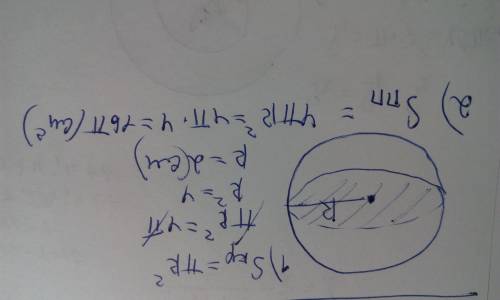 1) Sкр = πR²
πR² = 4π
R² = 4
R = 2 (см)
R
2) Sпп = 4πR² = 4π · 4 = 16π (см²)